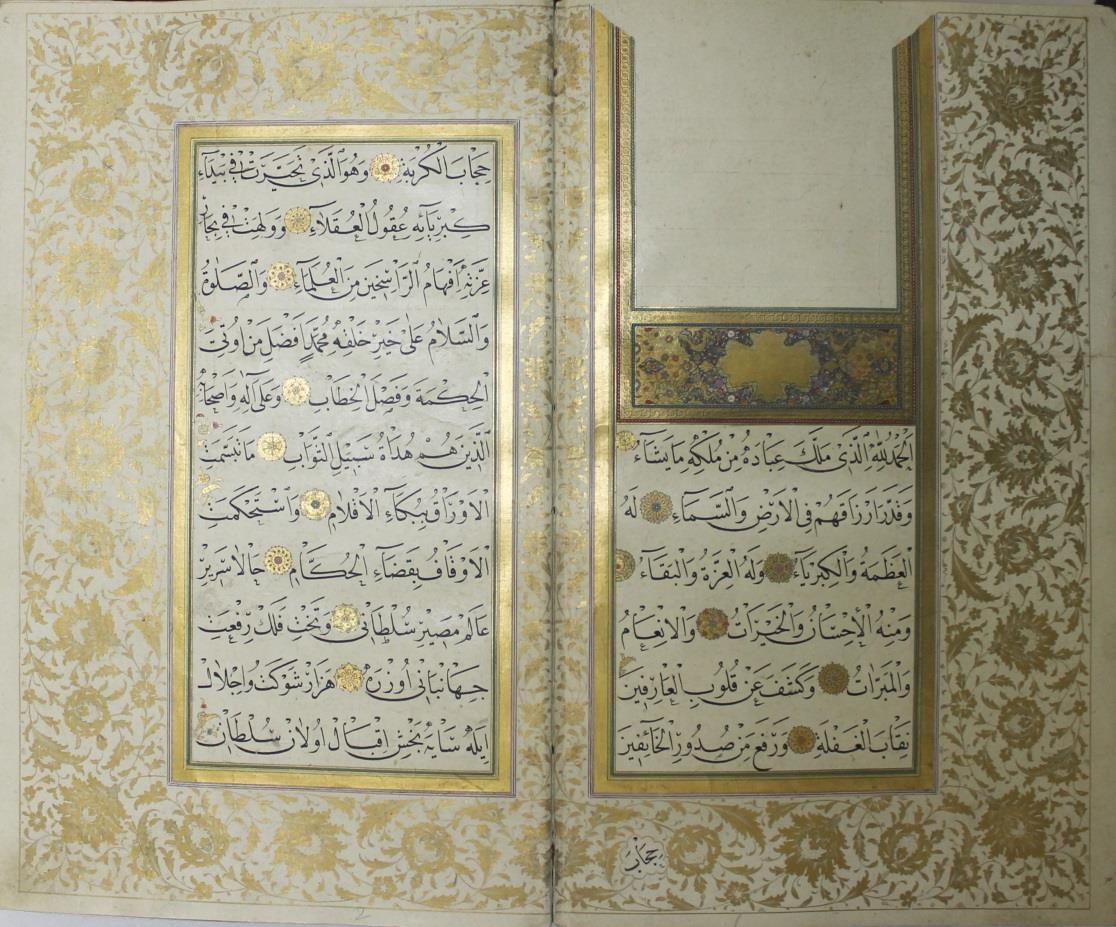 اَلْحَمْدُ لِلّٰهِ الَّذى مَلَّكَ عِبَادَهُ مِنْ مُلْكِهِ مَا يَشَاءُ
وَقَدَّرَ اَرْزَاقَهُمْ فِى الْاَرْضِ وَالسَّمَاءِ لَهُ
الْعَظَمَةُ وَالْكِبْرِيَاءُ وَلَهُ الْعِزَّةُ وَالْبَقَاءُ
وَمِنْهُ الْاِحْسَانُ وَالْخَيْرَاتُ وَالْاِنْعَامُ
وَالْمَبَرَّاتُ وَكَشَفَ عَنْ قُلُوبِ الْعَارِفِينَ
نِقَابَ الْغَفْلَةِ وَرَفَعَ مِنْ صُدُورِ الْخَائِفِينَ
حِجَابَ
حِجَابَ الْكُرْبَةِ وَهُوَ الَّذى تَحَيَّرَتْ فى بَيْدَاءِ
كِبْرِيَائِهِ عُقُولُ الْعُقَلَاءِ وَوَلِهَتْ فى بِحَارِ
عِزَّتِهِ اَفْهَامُ الرَّاسِخِينَ مِنَ الْعُلَمَاءِ وَالصَّلٰوةُ
وَالسَّلَامُ عَلٰى خَيْرِ خَلْقِهِ مُحَمَّدٍ اَفْضَلِ مَنْ اُوتِىَ
الْحِكْمَةَ وَفَصْلَ الْخِطَابِ وَعَلٰى آلِهِ وَاَصْحَابِهِ
الَّذِينَ هُمْ هُدَاةُ سَبِيلِ الثَّوَابِ مَا تَبَسَّمَتْ
الْاَوْرَاقُ بِبُكَاءِ الْاَقْلَامِ وَاسْتَحْكَمَتْ
الْاَوْقَافُ بِقَضَاءِ الْحُكَّامِ حَالَا سَرِيرِ
عَالَمْ مَصِيرِ سُلْطَانى وَتَخْتِ فَلَكْ رِفْعَتِ
جِهَانْبَانى اُوزْرَهْ هَزَارْ شَوْكَتْ وَاِجْلَالْ
اِيلَهْ سَايَهْ بَخْشِ اِقْبَالْ اُولَانْ سُلْطَانْ